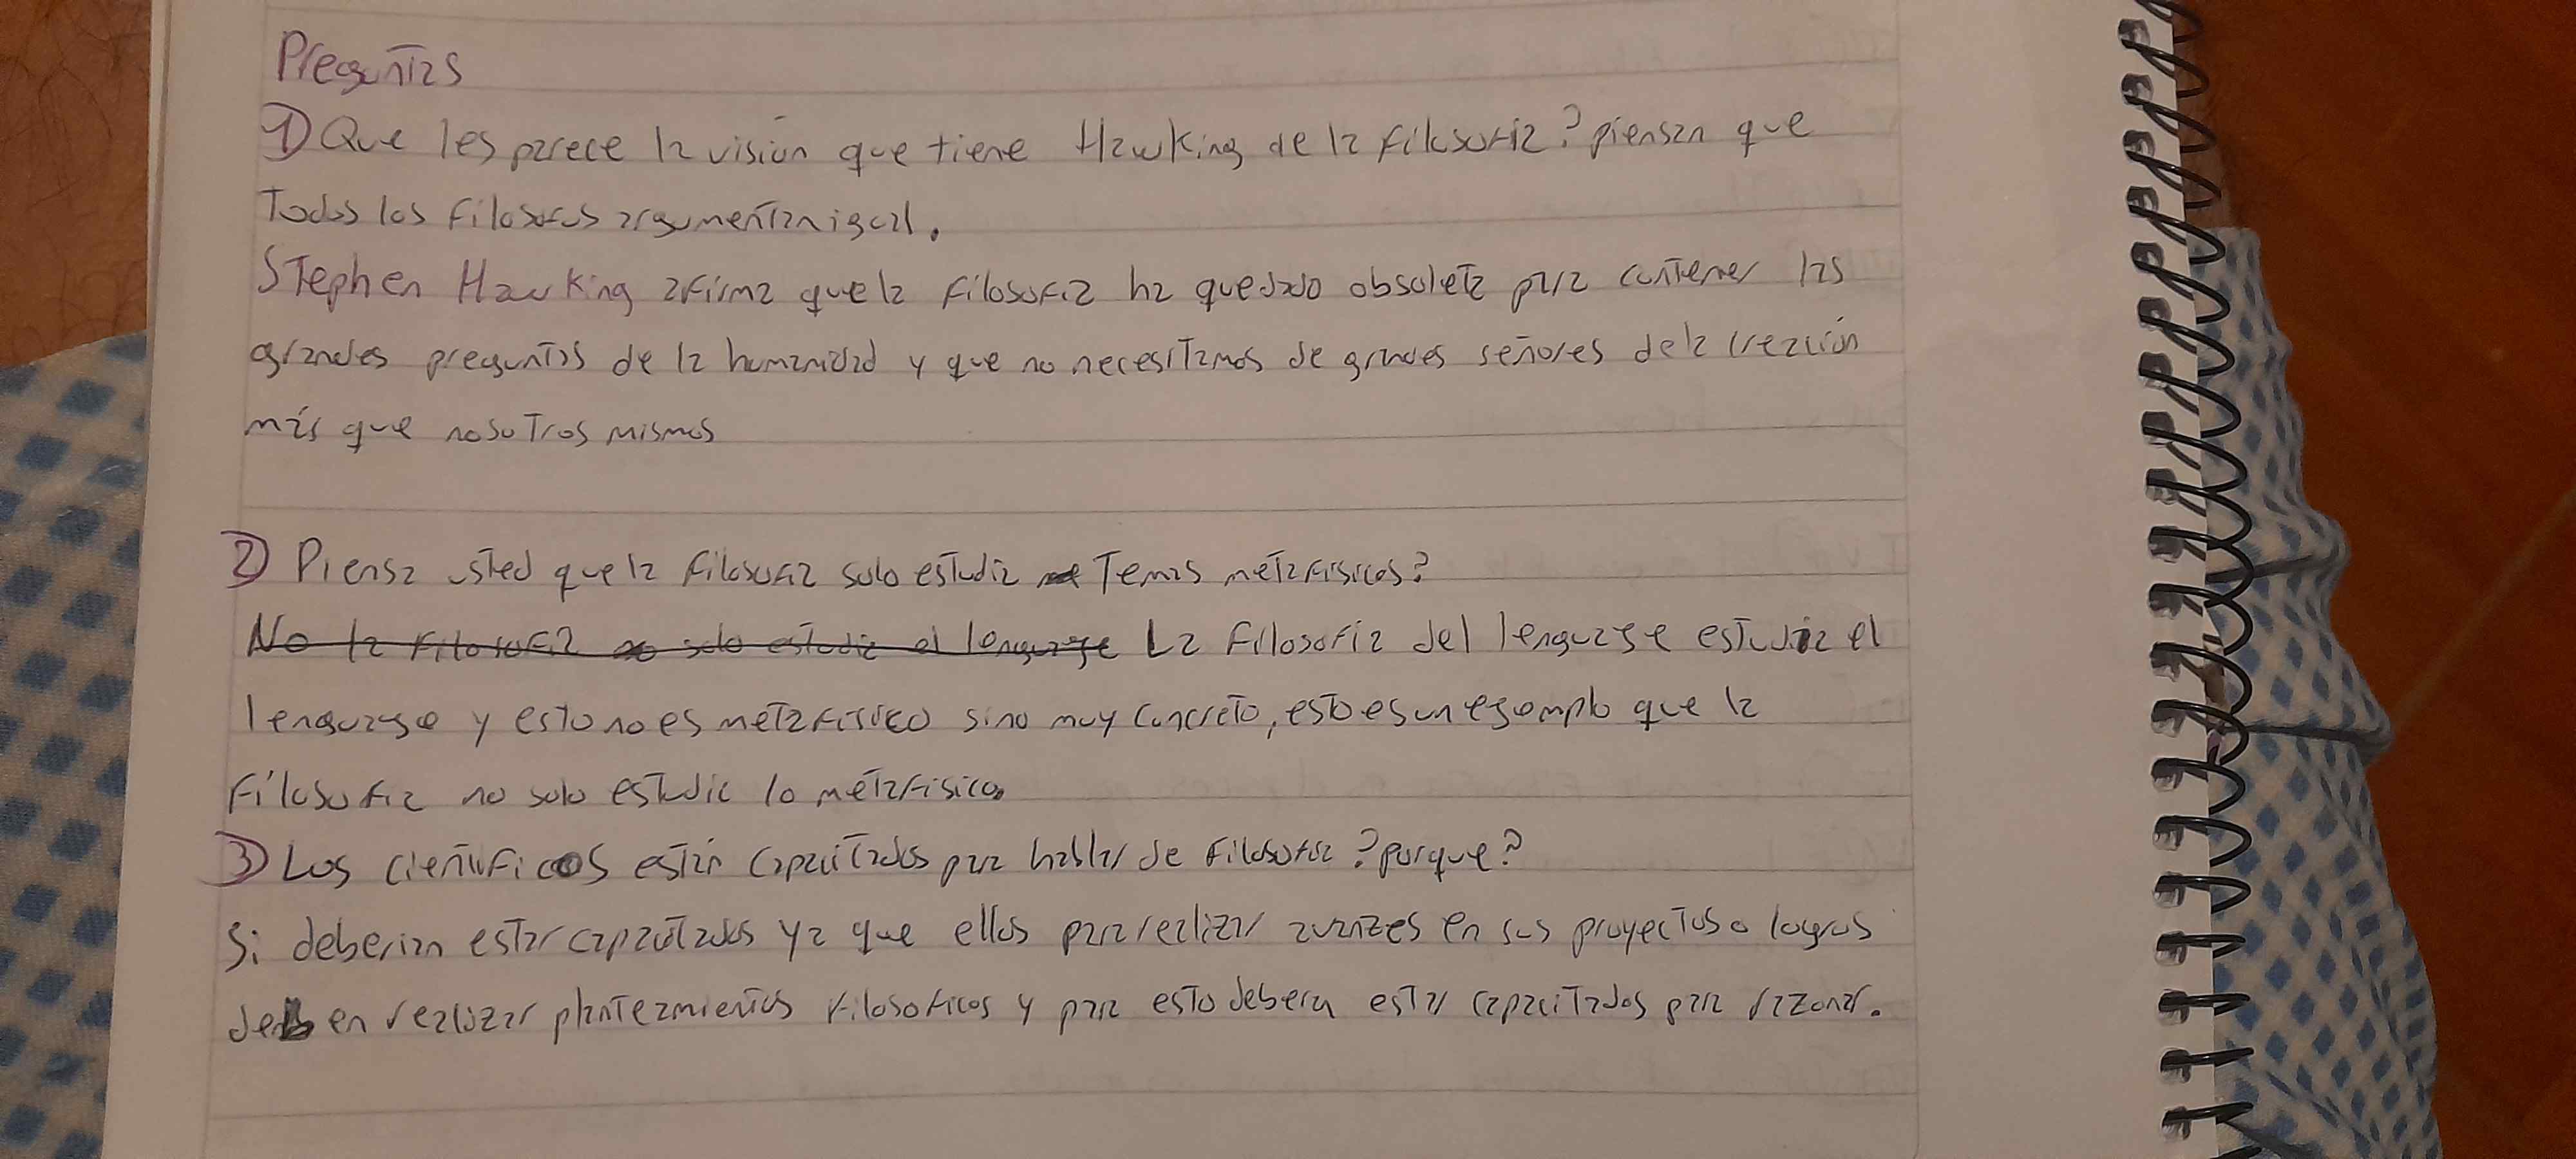 Preguntas
1) Que les parece la visión que tiene Hawking de la filosofia? piensan que
Todos los filosofos argumentan igual.
Stephen Hawking afirma que la filosofia ha quedado obsoleta para contener las
grandes preguntas de la humanidad y que no necesitamos de grandes señores de la creación
más que nosotros mismos
2) Piensa usted que la filosofia solo estudia Temas metafisicos?
No la filosofia no solo estudia el lenguaje La filosofia del lenguaje estudia el
lenguaje y esto no es metafisico sino muy concreto, esto es un ejemplo que la
filosofia no solo estudia lo metafisico.
3) Los cientificos están capacitados para hablar de filosofia? porque?
Si deberian estar capacitados ya que ellos para realizar avanzes en sus proyectos o logros
deben realizar planteamientos filosoficos y para esto deberan estar capacitados para razonar.